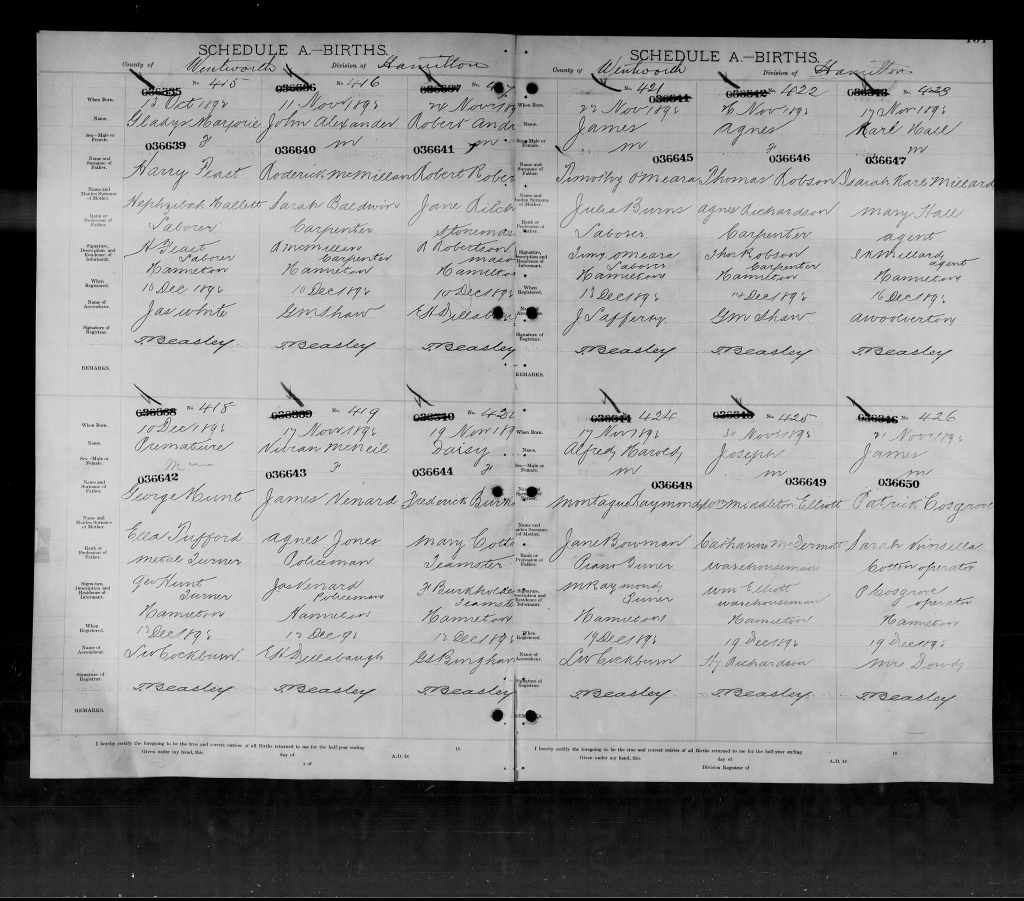 SCHEDULE A.—BIRTHS.
County of Wentworth Division of Hamilton
036335 No 415 036336 No 416 036337
When Born. 13 Oct 189 11 Nov 189 24 Nov 189
Name. Gladys Marjorie John Alexander Robert Andr
Sex—Male or Female. F m m
036639 036640 036641
Name and Surname of Father. Harry Peast Roderick McMillan Robert Rober
Name and Maiden Surname of Mother. Hephzibah Hallett Sarah Baldwin Jane Kilch
Rank or Profession of Father. Laborer Carpenter Stonemas
Signature, Description, and Residence of Informant. H Peast R McMillan R Robertson
Laborer Carpenter mason
Hamilton Hamilton Hamilton
When Registered. 10 Dec 189 10 Dec 189 10 Dec 189
Name of Accoucheur. Jas White GM Shaw EH Dillaba
Signature of Registrar. TBeasley TBeasley TBeasley
REMARKS.
036338 No 418 036339 No 419 036340 No 42
When Born. 10 Dec 189 17 Nov 189 19 Nov 189
Name. Premature Vivian McNeil Daisy
Sex—Male or Female. m F F
036642 036643 036644
Name and Surname of Father. George Hunt James Venard Frederick Burkh
Name and Maiden Surname of Mother. Ella Tufford Agnes Jones Mary Cotte
Rank or Profession of Father. Metal Turner Policeman Teamster
Signature, Description and Residence of Informant. Geo Hunt Jas Venard F Burkholde
Turner Policeman Teamste
Hamilton Hamilton Hamilton
When Registered. 12 Dec 189 12 Dec 9 12 Dec 189
Name of Accoucheur. Leo Cockburn EH Dillabaugh GS Bingham
Signature of Registrar. TBeasley TBeasley TBeasley
REMARKS.
I hereby certify the foregoing to be the true and correct entries of all Births returned to me for the half-year ending 18
Given under my hand, this day of A.D. 18
SCHEDULE A.—BIRTHS.
County of Wentworth Division of Hamilton
No 421 036341 036342 No 422 036343 No 423
When Born. 22 Nov 189 26 Nov 189 17 Nov 189
Name. James Agnes Karl Hall
Sex—Male or Female. m F m
036645 036646 036647
Name and Surname of Father. Timothy O'Meara Thomas Robson Isaiah Karl Millard
Name and Maiden Surname of Mother. Julia Burns Agnes Richardson Mary Hall
Rank or Profession of Father. Laborer Carpenter agent
Signature, Description and Residence of Informant. Timy OMeara Thos Robson I K Millard
Laborer Carpenter agent
Hamilton Hamilton Hamilton
When Registered. 13 Dec 189 14 Dec 189 16 Dec 189
Name of Accoucheur. J Lafferty GM Shaw A Woolverton
Signature of Registrar. TBeasley TBeasley TBeasley
REMARKS.
036344 No 424 036345 No 425 036346 No 426
When Born. 17 Nov 189 30 Nov 189 21 Nov 189
Name. Alfred Harold, Joseph James
Sex—Male or Female. m m m
036648 036649 036650
Name and Surname of Father. Montague Raymond Wm Middleton Elliott Patrick Cosgrove
Name and Maiden Surname of Mother. Jane Bowman Catharine McDermott Sarah Kinsella
Rank or Profession of Father. Piano Tuner warehouseman Cotton operator
Signature, Description and Residence of Informant. M Raymond Wm Elliott P Cosgrove
Tuner warehouseman operator
Hamilton Hamilton Hamilton
When Registered. 19 Dec 189 19 Dec 189 19 Dec 189
Name of Accoucheur. Leo Cockburn Hy Richardson Mrs Dowdy
Signature of Registrar. TBeasley TBeasley TBeasley
REMARKS.
I hereby certify the foregoing to be the true and correct entries of all Births returned to me for the half-year ending 18
Given under my hand, this day of A.D. 18
Division Registrar of